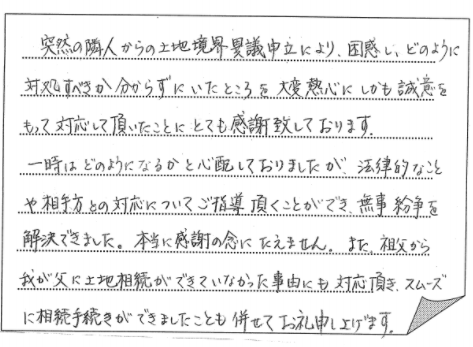 突然の隣人からの土地境界異議申立により、困惑し、どのように
対処すべきか分からずにいたところを大変熱心にしかも誠意を
もって対応して頂いたことにとても感謝致しております。
一時はどのようになるかと心配しておりましたが、法律的なこと
や相手方との対応についてご指導頂くことができ、無事紛争を
解決できました。本当に感謝の念にたえません。また、祖父から
我が父に土地相続ができていなかった事由にも対応頂き、スムーズ
に相続手続きができましたことも併せてお礼申し上げます。